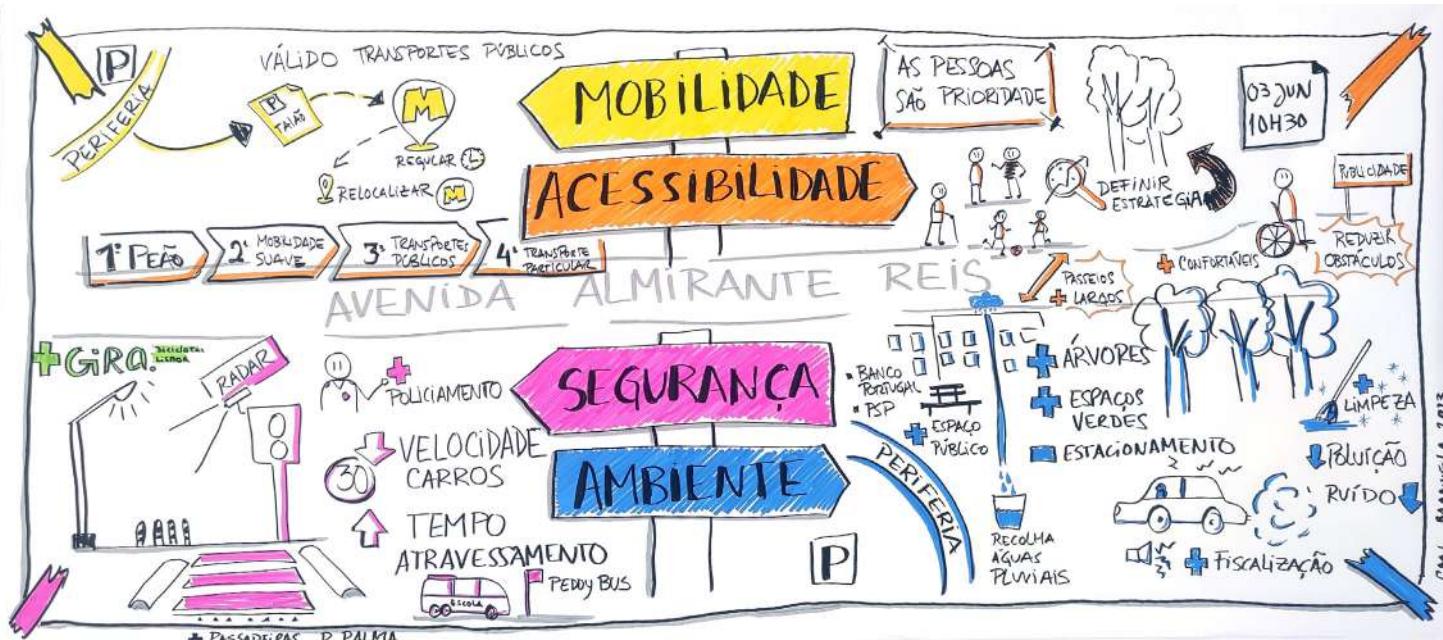 P
PERIFERIA
VÁLIDO TRANSPORTES PÚBLICOS
M
REGULAR
RELOCALIZAR M
MOBILIDADE
ACESSIBILIDADE
AS PESSOAS
SÃO PRIORIDADE
03 JUN
10H30
DEFINIR
ESTRATEGIA
PUBLICIDADE
REDUZIR
OBSTÁCULOS
1º PEÃO
2º MOBILIDADE
SUAVE
3º TRANSPORTES
PÚBLICOS
4º TRANSPORTE
PARTICULAR
AVENIDA ALMIRANTE REIS
PASSEIOS
+ LARGOS
+ CONFORTÁVEIS
+ GIRA.
RADAR
+
POLICIAMENTO
VELOCIDADE
CARROS
30
TEMPO
ATRAVESSAMENTO
ESCOLA
PEDDY BUS
+ PASSADEIRAS
SEGURANÇA
AMBIENTE
P
PERIFERIA
BANCO
PORTUGAL
PSP
+ ESPAÇO
PÚBLICO
RECOLHA
ÁGUAS
PLUVIAIS
+ ÁRVORES
+ ESPAÇOS
VERDES
ESTACIONAMENTO
+
LIMPEZA
POLUIÇÃO
RUÍDO
+ FISCALIZAÇÃO